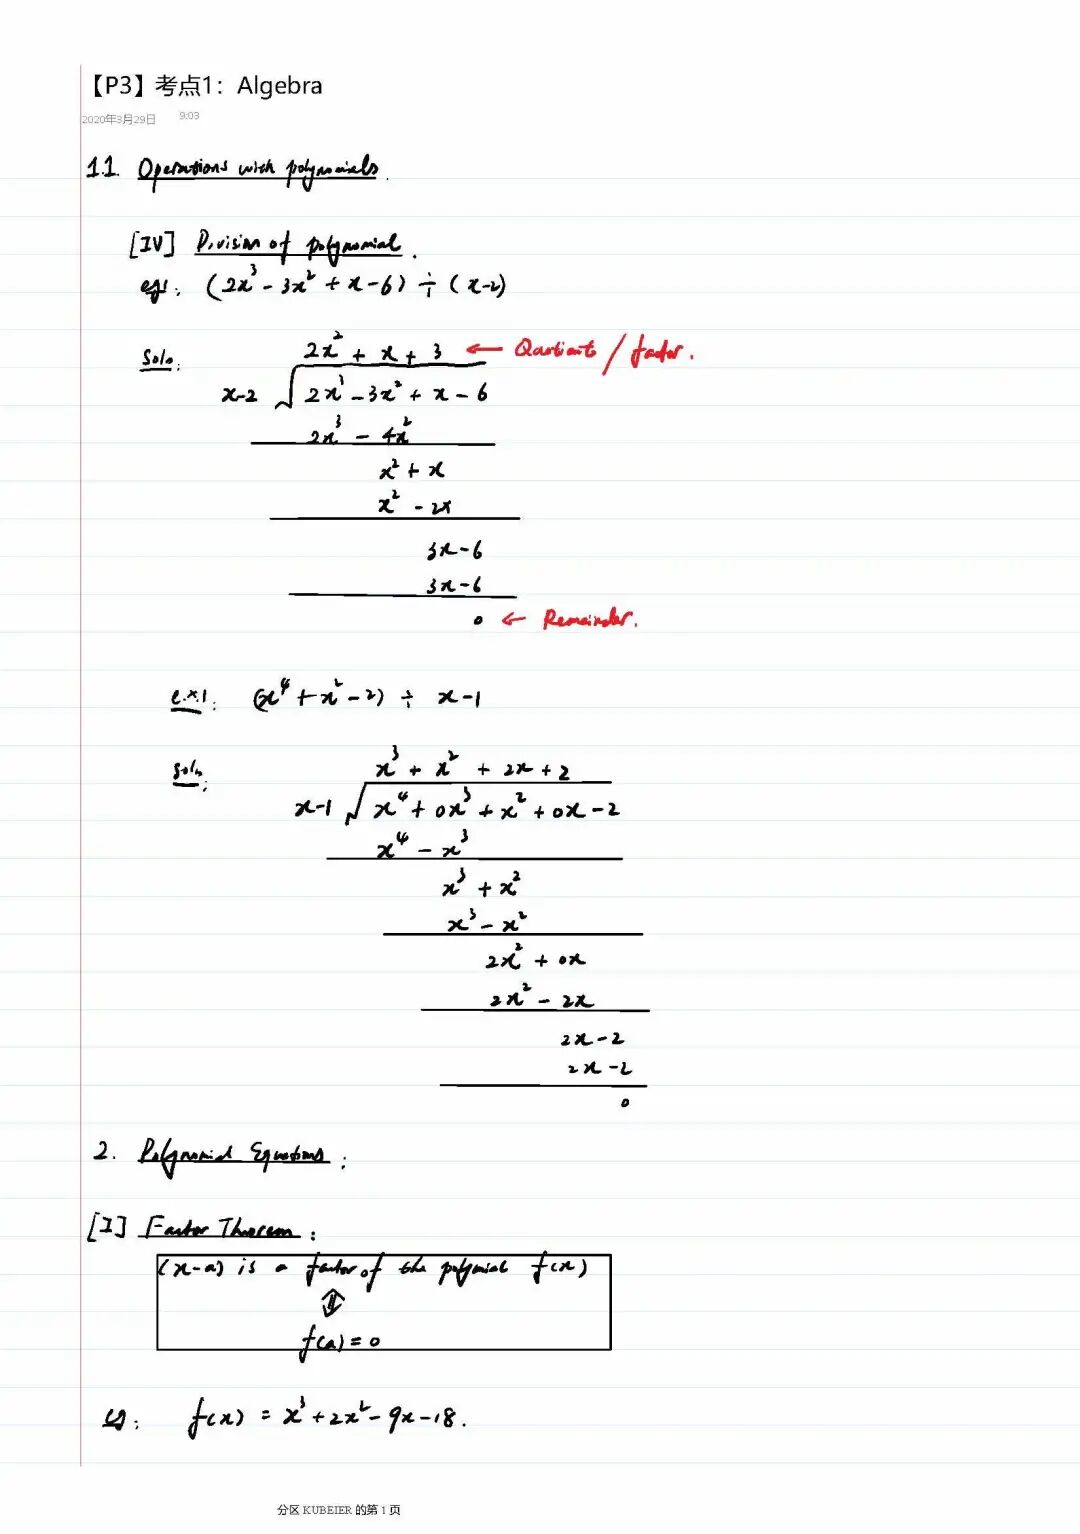 【P3】考点1：Algebra
2020年3月29日 9:03
1.1. Operations with polynomials.
[IV] Division of polynomial.
eg1: (2x³ - 3x² + x - 6) ÷ (x-2)
2x² + x + 3 ← Quotient / factor.
Soln: x-2 √ 2x³ - 3x² + x - 6
2x³ - 4x²
x² + x
x² - 2x
3x - 6
3x - 6
0 ← Remainder.
e.x.1: (x⁴ + x² - 2) ÷ x-1
soln: x³ + x² + 2x + 2
x-1 √ x⁴ + 0x³ + x² + 0x - 2
x⁴ - x³
x³ + x²
x³ - x²
2x² + 0x
2x² - 2x
2x - 2
2x - 2
0
2. Polynomial Equations:
[I] Factor Theorem:
(x-a) is a factor of the polynomial f(x)
⇕
f(a) = 0
eg: f(x) = x³ + 2x² - 9x - 18.
分区 KUBEIER 的第 1 页